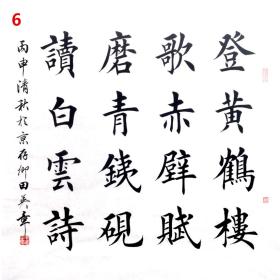 6
登黄鶴樓
歌赤壁賦
磨青銕硯
讀白雲詩
丙申清秋於京存御田英章